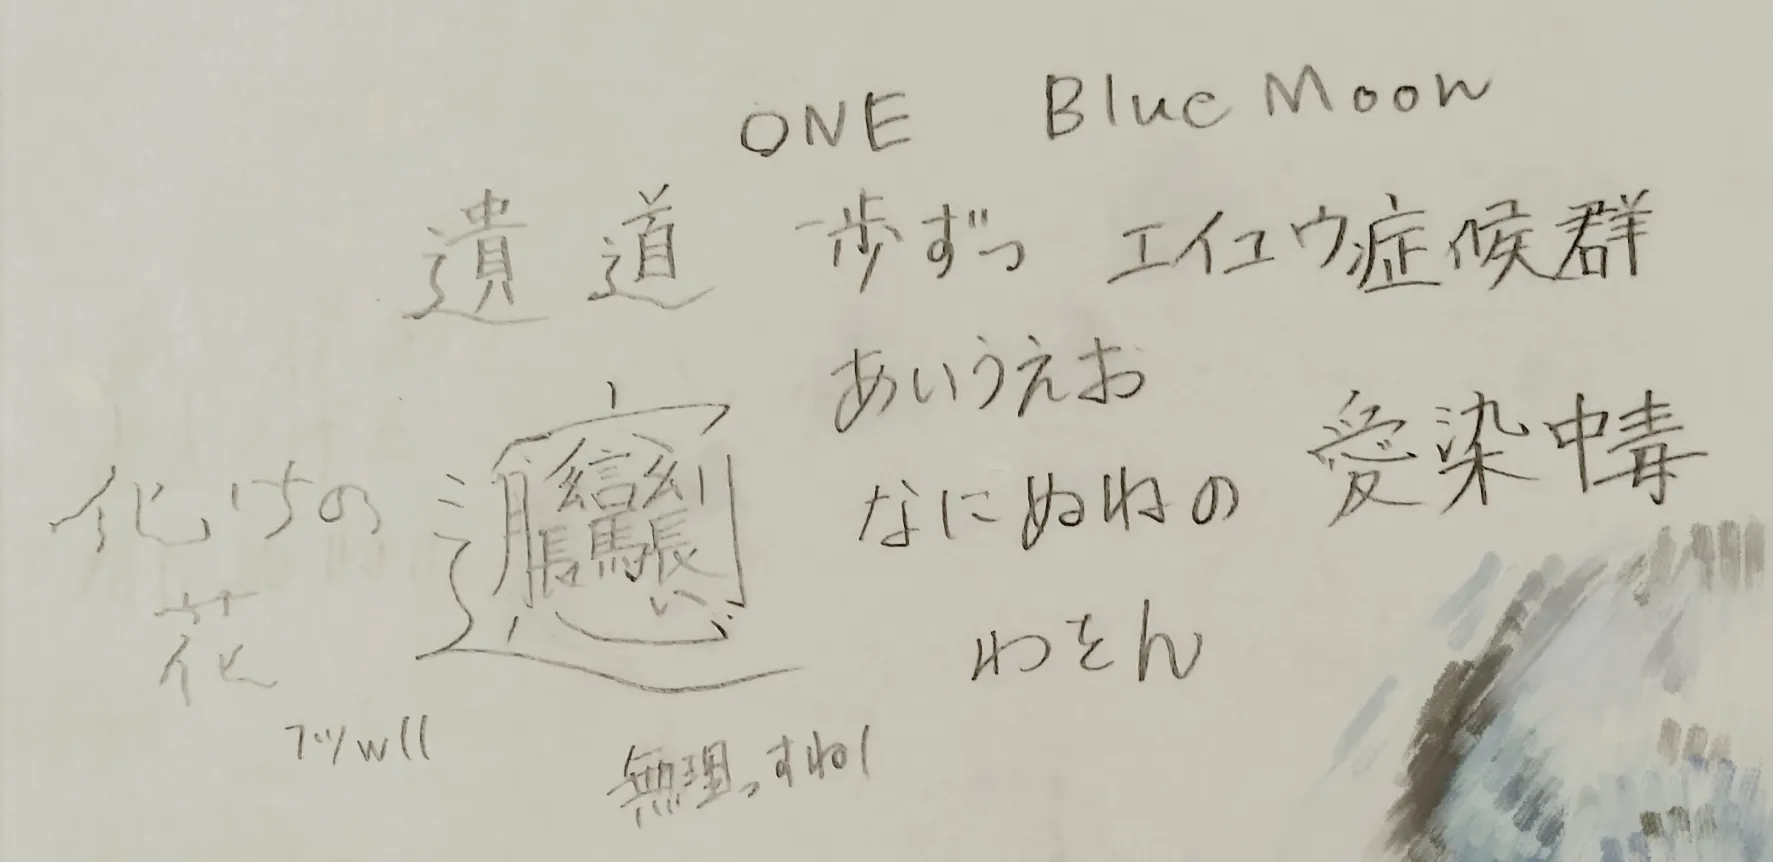 ONE Blue Moon
遺 道 一歩ずつ エイユウ症候群
あいうえお
愛染中毒
化けの
なにぬねの
花
わをん
無理っすねー